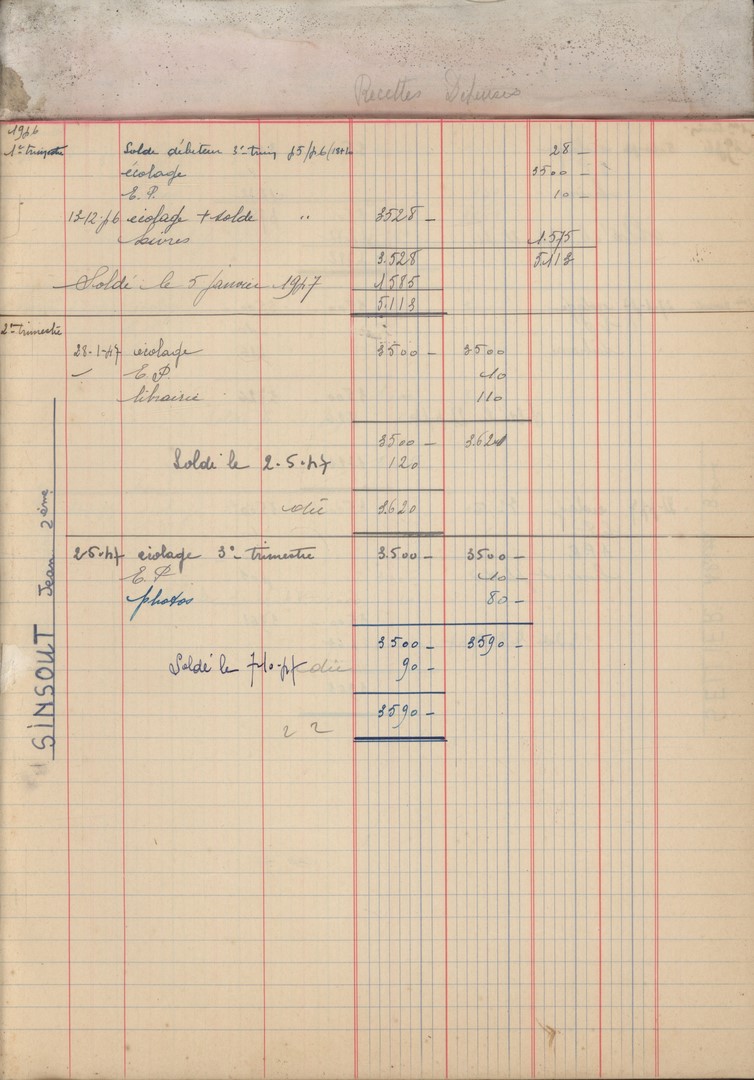 Recettes Dépenses
1946
1er trimestre Solde débiteur 3e trim 45/46 28 —
écolage 3500 —
E.P. 10 —
13-12-46 écolage + solde " 3528 —
Livres 1.575
3.528 5.113
Soldé le 5 janvier 1947 1585
5.113
2me trimestre
28-1-47 écolage 3500 — 3500
— E.P. 10
librairie 110
3500 — 3.620
Soldé le 2.5.47 120
dû 3.620
2.5.47 écolage 3e trimestre 3.500 — 3500 —
E.P. 10 —
photos 80 —
3500 — 3590 —
Soldé le 7.10.47 dû 90 —
3590 —
2 2
SINSOUT Jean 2ème